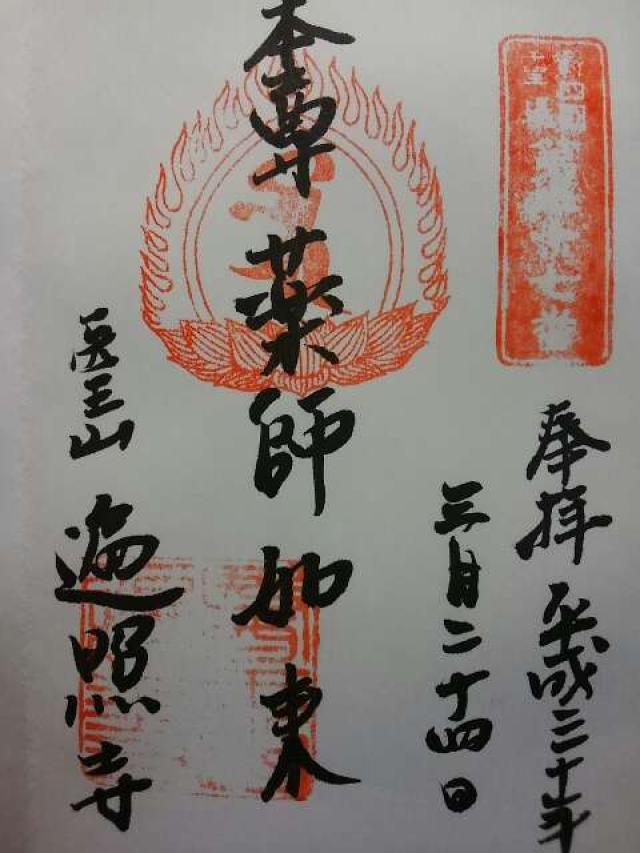 奉拝 平成三十年
三月二十四日
本尊 薬師如来
医王山 遍照寺